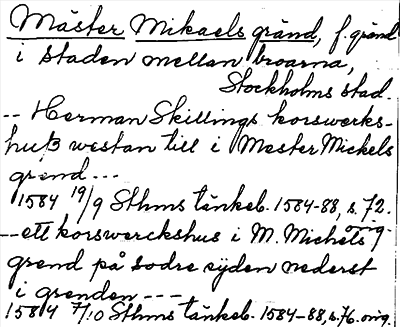 Mäster Mikaels gränd, f. gränd
i staden mellan broarna,
Stockholms stad.
-- Herman Skillings korswerks-
husz westan till i Mester Mickels
grend ---
1584 19/9 Sthms tänkeb. 1584-88, s. 72.
orig.
-- ett korswerckshus i M. Michels
grend på sodre syden nederst
i grenden ---
1584 7/10 Sthms tänkeb. 1584-88, s. 76. orig.